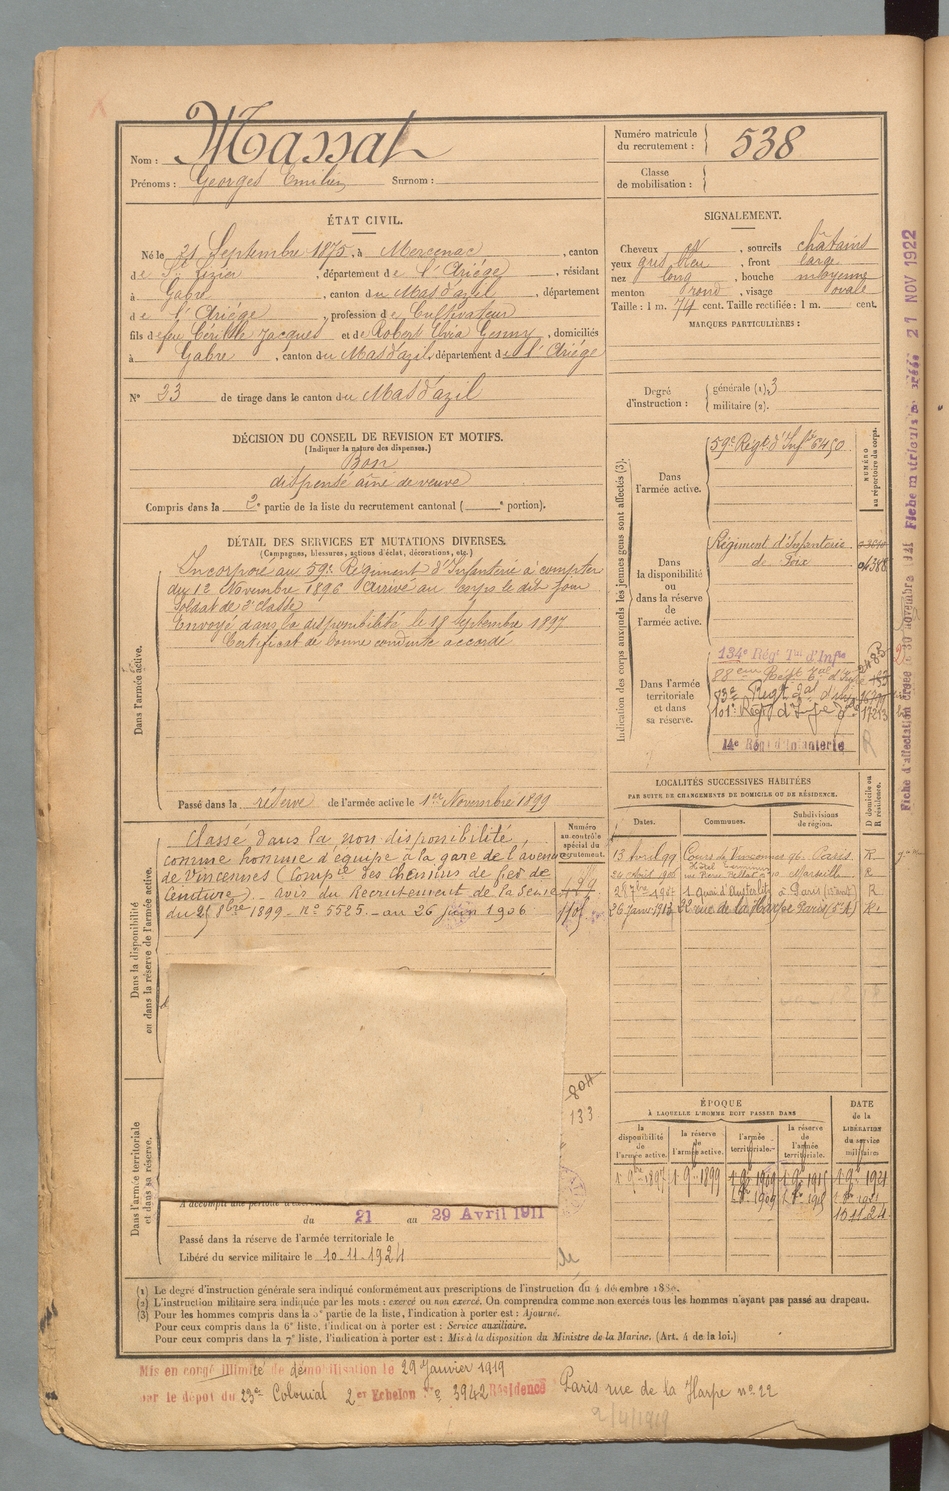 Nom : Massat
Prénoms : Georges Emilien Surnom :
Numéro matricule du recrutement : 538
Classe de mobilisation :
ÉTAT CIVIL.
Né le 21 Septembre 1875, à Mercenac, canton
de St Lizier, département de l'Ariége, résidant
à Gabre, canton du Mas d'azil, département
de l'Ariége, profession de Cultivateur
fils de feu Jacques et de Robert , domiciliés
à Gabre, canton du Mas d'azil, département de l'Ariége
N° 23 de tirage dans le canton du Mas d'azil
SIGNALEMENT.
Cheveux , sourcils châtains
yeux gris bleu, front large
nez long, bouche moyenne
menton rond, visage ovale
Taille : 1 m. 74 cent. Taille rectifiée : 1 m. cent.
MARQUES PARTICULIÈRES :
Degré d'instruction : générale (1). 3
militaire (2).
DÉCISION DU CONSEIL DE REVISION ET MOTIFS.
(Indiquer la nature des dispenses.)
Bon
dispensé aîné de veuve
Compris dans la 2e partie de la liste du recrutement cantonal ( e portion).
DÉTAIL DES SERVICES ET MUTATIONS DIVERSES.
(Campagnes, blessures, actions d'éclat, décorations, etc.)
Dans l'armée active.
Incorporé au 59e Régiment d'Infanterie à compter
du 12 Novembre 1896 Arrivé au corps le dit jour
Soldat de 2e classe
Envoyé dans la disponibilité le 18 Septembre 1897
Certificat de bonne conduite accordé
Passé dans la réserve de l'armée active le 1er Novembre 1899
Indication des corps auxquels les jeunes gens sont affectés (3).
NUMÉRO au répertoire du corps.
Dans l'armée active.
59e Régt d'Infie 6450
Dans la disponibilité ou dans la réserve de l'armée active.
Régiment d'Infanterie
de Foix
Dans l'armée territoriale et dans sa réserve.
134e Régt Tal d'Infie
14e Régt d'Infanterie
Fiche d'affectation créée 30 novembre
Fiche matriculaire créée 21 NOV 1922
Dans la disponibilité ou dans la réserve de l'armée active.
Numéro au contrôle spécial du recrutement.
Classé dans la non disponibilité,
comme homme d'équipe à la gare de l'avenue
de Vincennes (Compie des chemins de fer de
Ceinture) avis du Recrutement de la Seine
du 8bre 1899 - n° 5525 - au 26 juin 1906
LOCALITÉS SUCCESSIVES HABITÉES
PAR SUITE DE CHANGEMENTS DE DOMICILE OU DE RÉSIDENCE.
Dates. Communes. Subdivisions de région. D domicile ou R résidence.
13 Avril 99 Cours de Vincennes 96 Paris R
Marseille R
1 quai d'Austerlitz à Paris R
26 Janv 1913 22 rue de la Harpe Paris R
804
133
ÉPOQUE
À LAQUELLE L'HOMME DOIT PASSER DANS
DATE de la LIBÉRATION du service militaire
la disponibilité de l'armée active. la réserve de l'armée active. l'armée territoriale. la réserve de l'armée territoriale.
1 9bre 1897 1 9bre 1899 1 9bre 1909 1 9bre 1915 1 9bre 1921
10.11.24
Dans l'armée territoriale et dans sa réserve.
A accompli une période d'exercices
du 21 au 29 Avril 1911
Passé dans la réserve de l'armée territoriale le
Libéré du service militaire le 10-11-1924
(1) Le degré d'instruction générale sera indiqué conformément aux prescriptions de l'instruction du 4 décembre 1889.
(2) L'instruction militaire sera indiquée par les mots : exercé ou non exercé. On comprendra comme non exercés tous les hommes n'ayant pas passé au drapeau.
(3) Pour les hommes compris dans la 5e partie de la liste, l'indication à porter est : Ajourné.
Pour ceux compris dans la 6e liste, l'indication à porter est : Service auxiliaire.
Pour ceux compris dans la 7e liste, l'indication à porter est : Mis à la disposition du Ministre de la Marine. (Art. 4 de la loi.)
Mis en congé illimité de démobilisation le 29 Janvier 1919
par le dépôt du 23e Colonial 2e Echelon N° 3942 Résidence Paris rue de la Harpe n° 22
2/4/1919